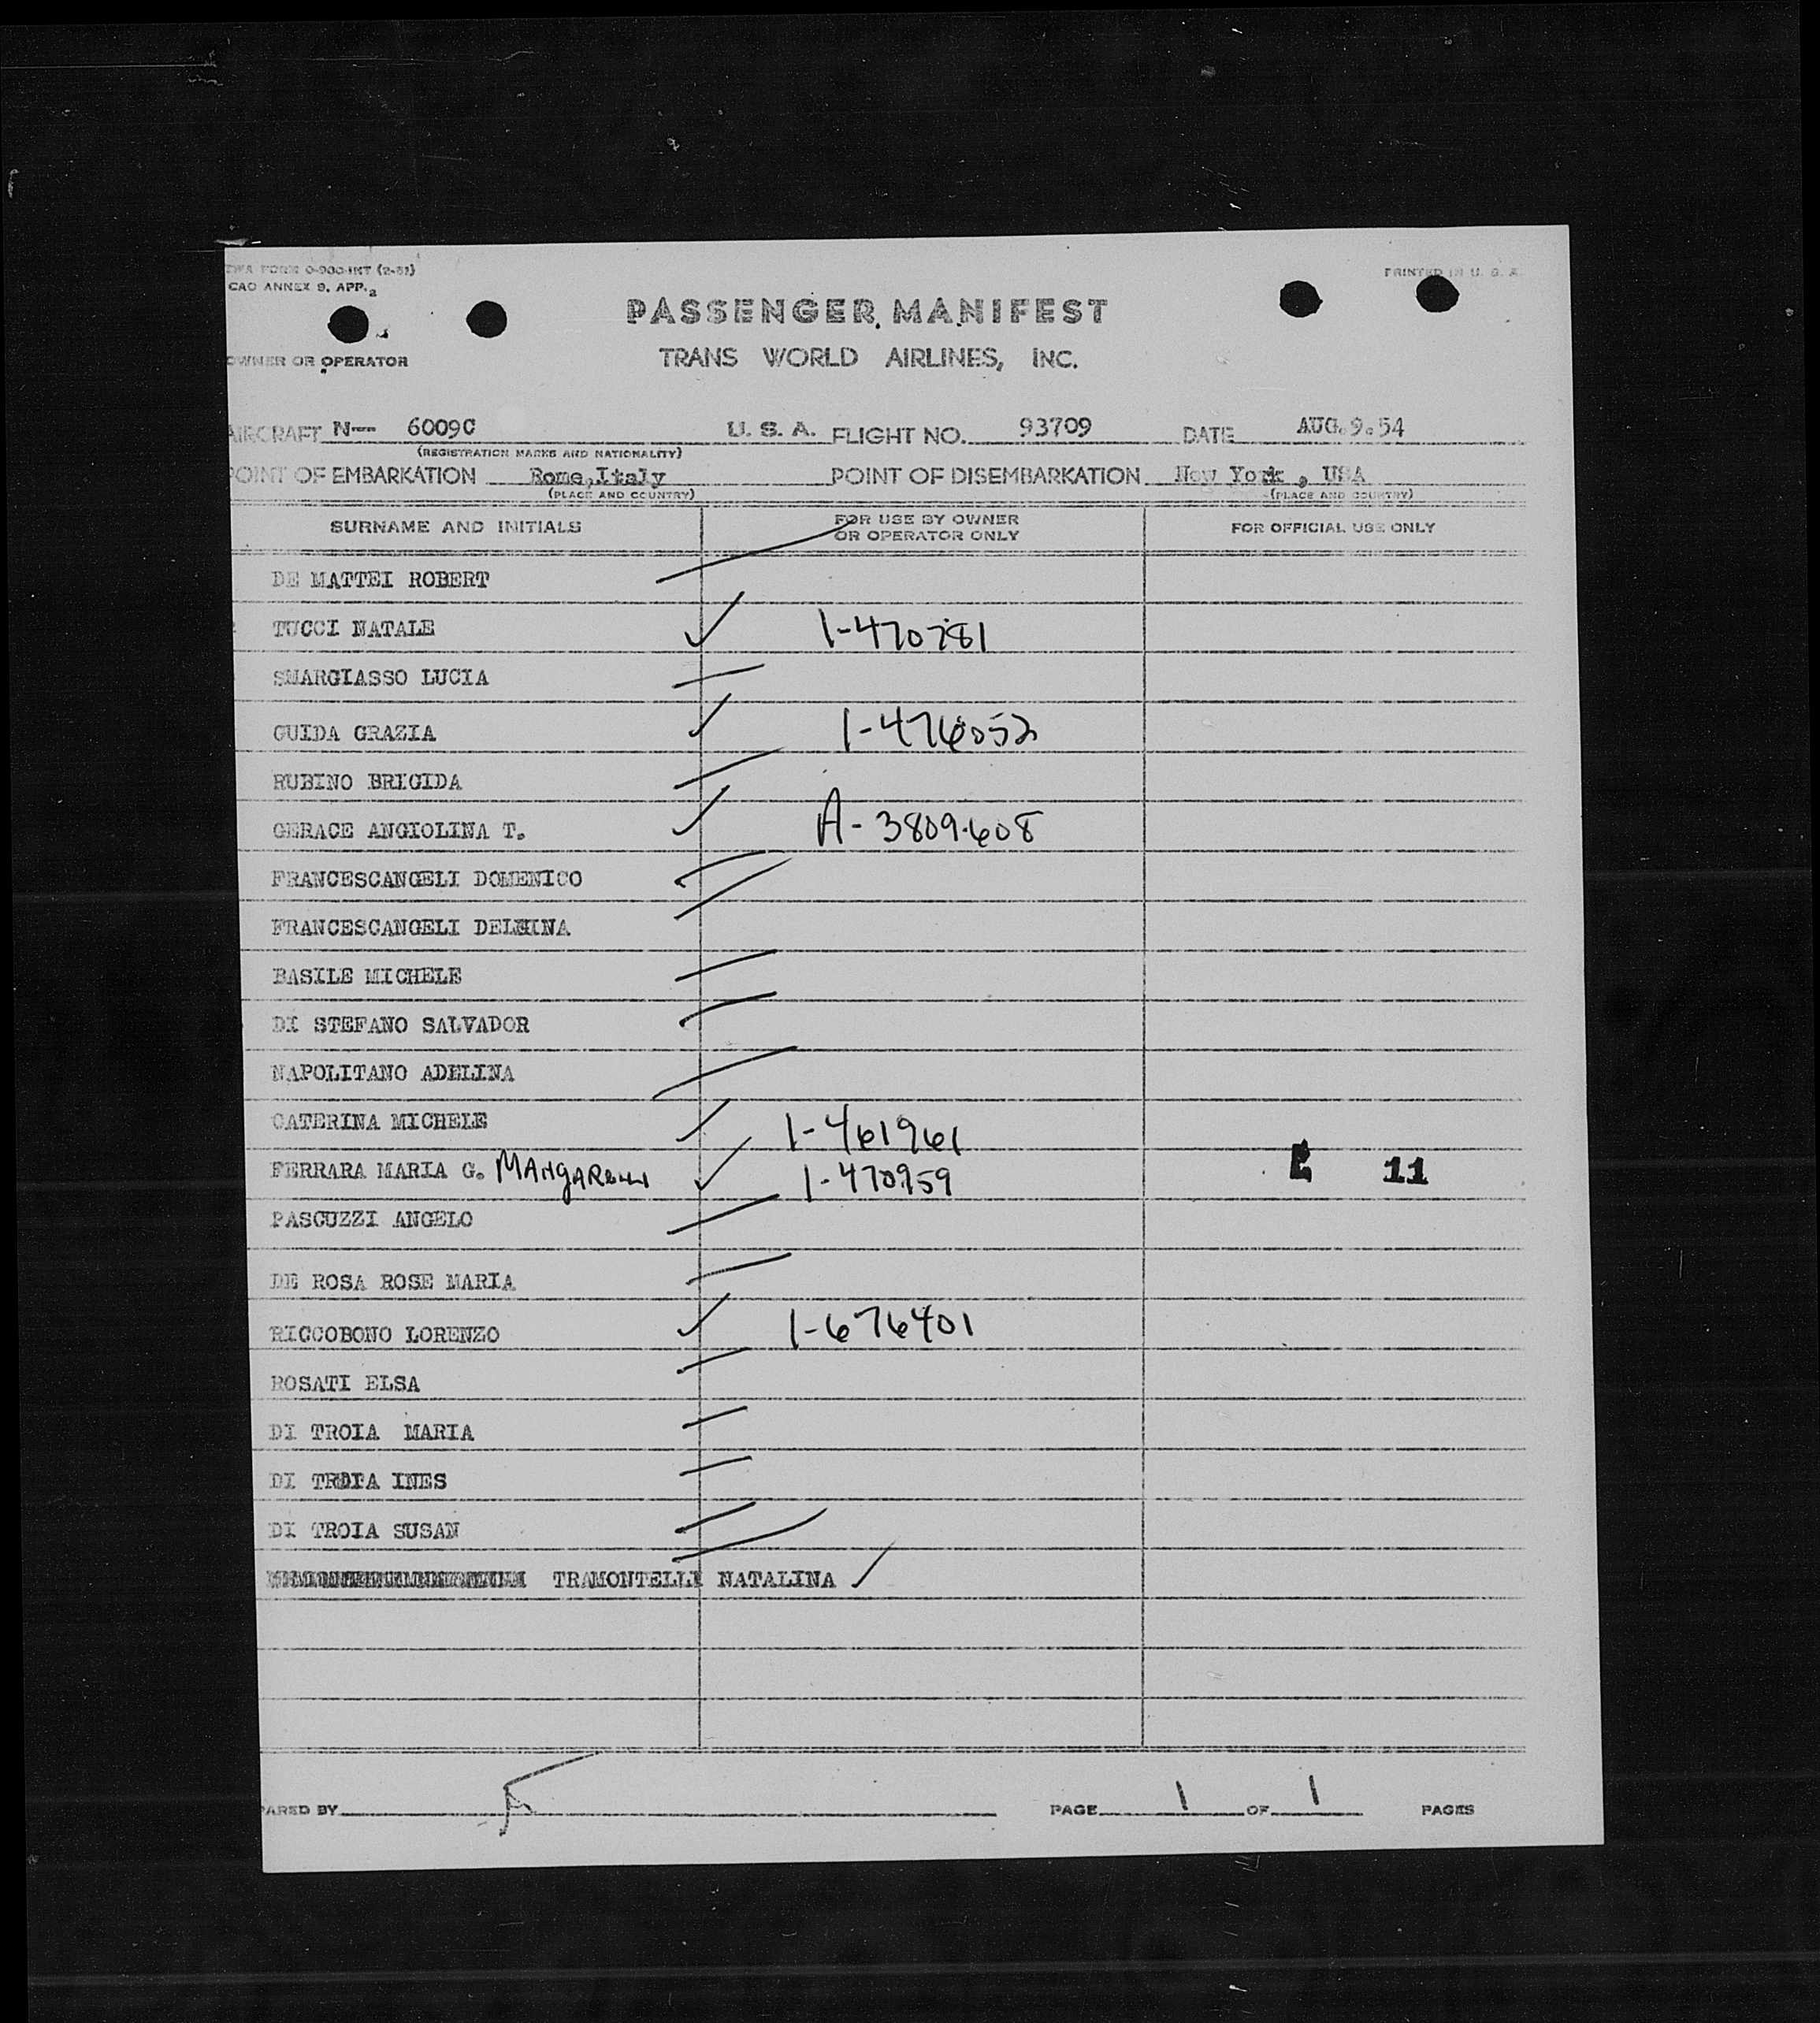 TWA FORM 0-900-INT (2-51)
PRINTED IN U. S. A.
CAO ANNEX 9, APP. 2
PASSENGER MANIFEST
OWNER OR OPERATOR
TRANS WORLD AIRLINES, INC.
AIRCRAFT N-- 6009C U. S. A. FLIGHT NO. 93709 DATE AUG. 9. 54
(REGISTRATION MARKS AND NATIONALITY)
POINT OF EMBARKATION Rome, Italy POINT OF DISEMBARKATION New York , USA
(PLACE AND COUNTRY) (PLACE AND COUNTRY)
SURNAME AND INITIALS FOR USE BY OWNER OR OPERATOR ONLY FOR OFFICIAL USE ONLY
DE MATTEI ROBERT
TUCCI NATALE ✓ 1-470781
SMARGIASSO LUCIA
GUIDA GRAZIA ✓ 1-476052
RUBINO BRIGIDA
GERACE ANGIOLINA T. ✓ A-3809.608
FRANCESCANGELI DOMENICO
FRANCESCANGELI
BASILE MICHELE
DI STEFANO SALVADOR
NAPOLITANO ADELINA
CATERINA MICHELE ✓ 1-461961
FERRARA MARIA G. MANGARELLI ✓ 1-470959 11
PASCUZZI ANGELO
DE ROSA ROSE MARIA
RICCOBONO LORENZO ✓ 1-676401
ROSATI ELSA
DI TROIA MARIA
DI TROIA INES
DI TROIA SUSAN
TRAMONTELLI NATALINA ✓
PARED BY PAGE 1 OF 1 PAGES